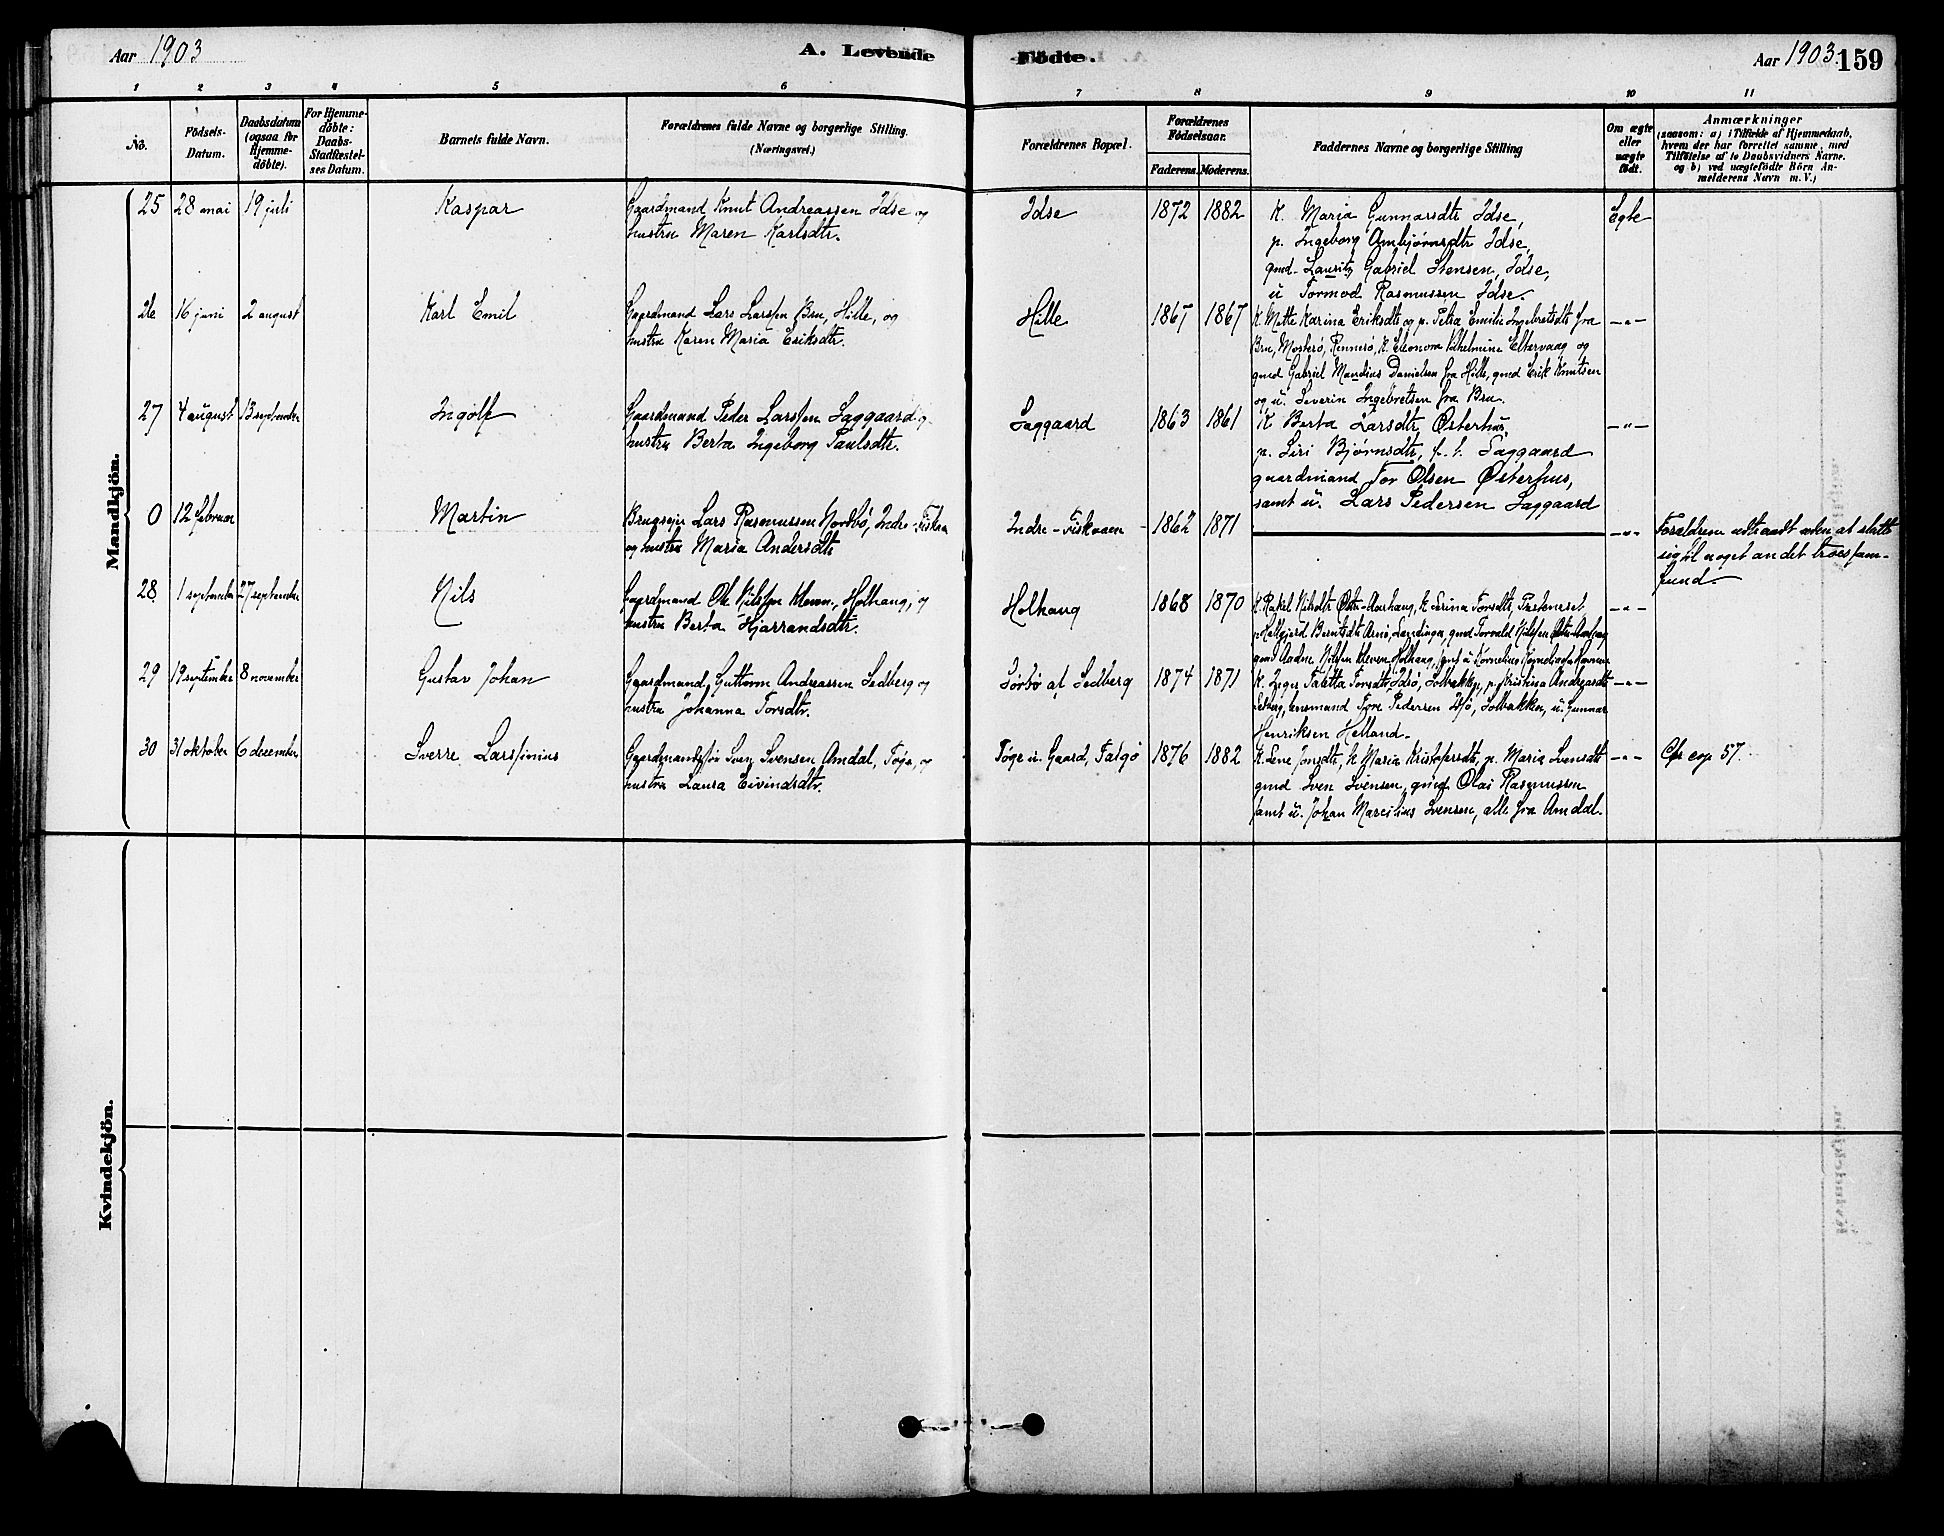 Aar 1903
A. Levende
Födte.
Aar 1903. 159
1 2 3 4 5 6 7 8 9 10 11
No.
Födsels-Datum.
Daabsdatum (ogsaa for Hjemme-döbte).
For Hjemme-döbte: Daabs-Stadfæstel-ses Datum.
Barnets fulde Navn.
Forældrenes fulde Navne og borgerlige Stilling.
(Næringsvei.)
Forældrenes Bopæl.
Forældrenes Födselsaar.
Faderens. Moderens.
Faddernes Navne og borgerlige Stilling
Om ægte eller uægte födt.
Anmærkninger
(saasom: a) i Tilfælde af Hjemmedaab,
hvem der har forrettet samme, med
Tilföielse af to Daabsvidners Navne.
og b) ved uægtefödte Börn An-
melderens Navn m. V.)
Mandkjön.
25 28 mai 19 juli Kaspar Gaardmand Knut Andreassen Idse og Idse 1872 1882 K. Maria Gunnarsdtr Idse, Egte
hustru Maren Karlsdtr. p. Ingeborg Ambjørnsdtr Idse,
gmd. Lauritz Gabriel Stensen, Idse,
u Tormod Rasmussen Idse.
26 16 juni 2 august Karl Emil Gaardmand Lars Larssen Bru, Hille, og Hille 1867 1867 K. Mette Karina Eriksdtr og p. Petra Emilie Ingebretsdtr fra -"-
hustru Karen Maria Eriksdtr. Bru, Mosterø, Rennesø, K. Eleonora Vilhelmine Eltervaag og
gmd Gabriel Mandius Danielsen fra Hille, gmd Erik Knutsen
og u. Severin Ingebretsen fra Bru.
27 4 august 13 september Ingolf Gaardmand Peder Larssen Saggaard og Saggaard 1863 1861 K Berta Larsdtr Østerhus, -"-
hustru Berta Ingeborg Paulsdtr. p. Siri Bjørnsdtr, f. t. Saggaard
gaardmand Tor Olsen Østerhus,
samt u. Lars Pedersen Saggaard
0 12 februar Martin Brugseier Lars Rasmussen Nordbø, Indre-Fiskaa Indre-Fiskaaen 1862 1871 -"- Forældrene udtraadt uden at slutte
og hustru Maria Andersdtr sig til noget andet troessam-
fund.
28. 1 september 27 september Nils Gaardmand Ole Nilssen Kleven, Holhaug, og Holhaug 1868 1870 K. Rakel Nilsdtr Østre-Aarhaug, K Serina Torsdtr, -"-
hustru Berta Hjarrandsdtr. Berntsdtr Arnø, gmd Torvald Nilssen
gmd Nilssen Kleven Holhaug, samt u Kornelius
29 19 september 8 november Gustav Johan Gaardmand Guttorm Andreassen Sedberg og Sørbø af Sedberg 1874 1871 K. Talitta Torsdtr, Idsø, Solbakken, p. Kristina Andreasdtr -"-
hustru Johanna Torsdtr. Sedberg, Tore Pedersen Idsø, Solbakken, u. Gunnar
Henriksen Helland.
30 31 oktober 6 december Sverre Larssinius Gaardmandssøn Sven Svensen Amdal, Tøge, og Tøge u. Gaard, Talgø 1876 1882 K. Lene Jonsdtr, K Maria Kristofersdtr, p. Maria Svensdtr -"- Cfr cop 57.
hustru Laura Eivindsdtr. gmd Sven Svensen, gmd Olai Rasmussen
samt u. Johan Marcilius Svensen, alle fra Amdal.
Kvindekjön.